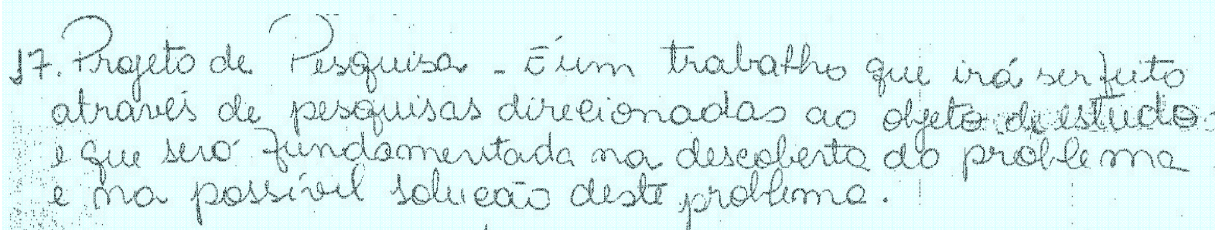 17. Projeto de Pesquisa - É um trabalho que irá ser feito
através de pesquisas direcionadas ao objeto de estudo
e que será fundamentada na descoberta do problema
e na possível solução deste problema.